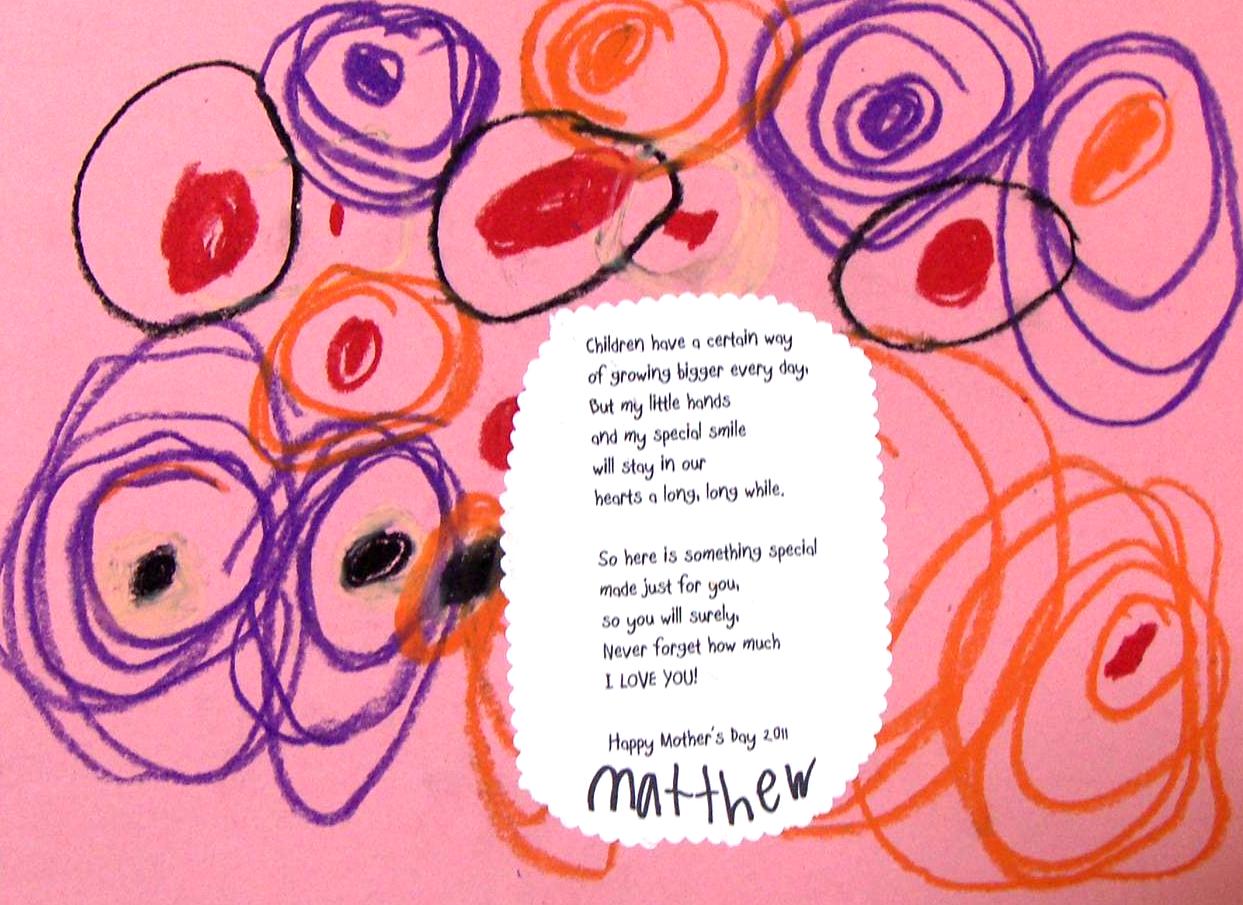 Children have a certain way
of growing bigger every day.
But my little hands
and my special smile
will stay in our
hearts a long, long while.
So here is something special
made just for you,
so you will surely,
Never forget how much
I LOVE YOU!
Happy Mother's Day 2011
matthew